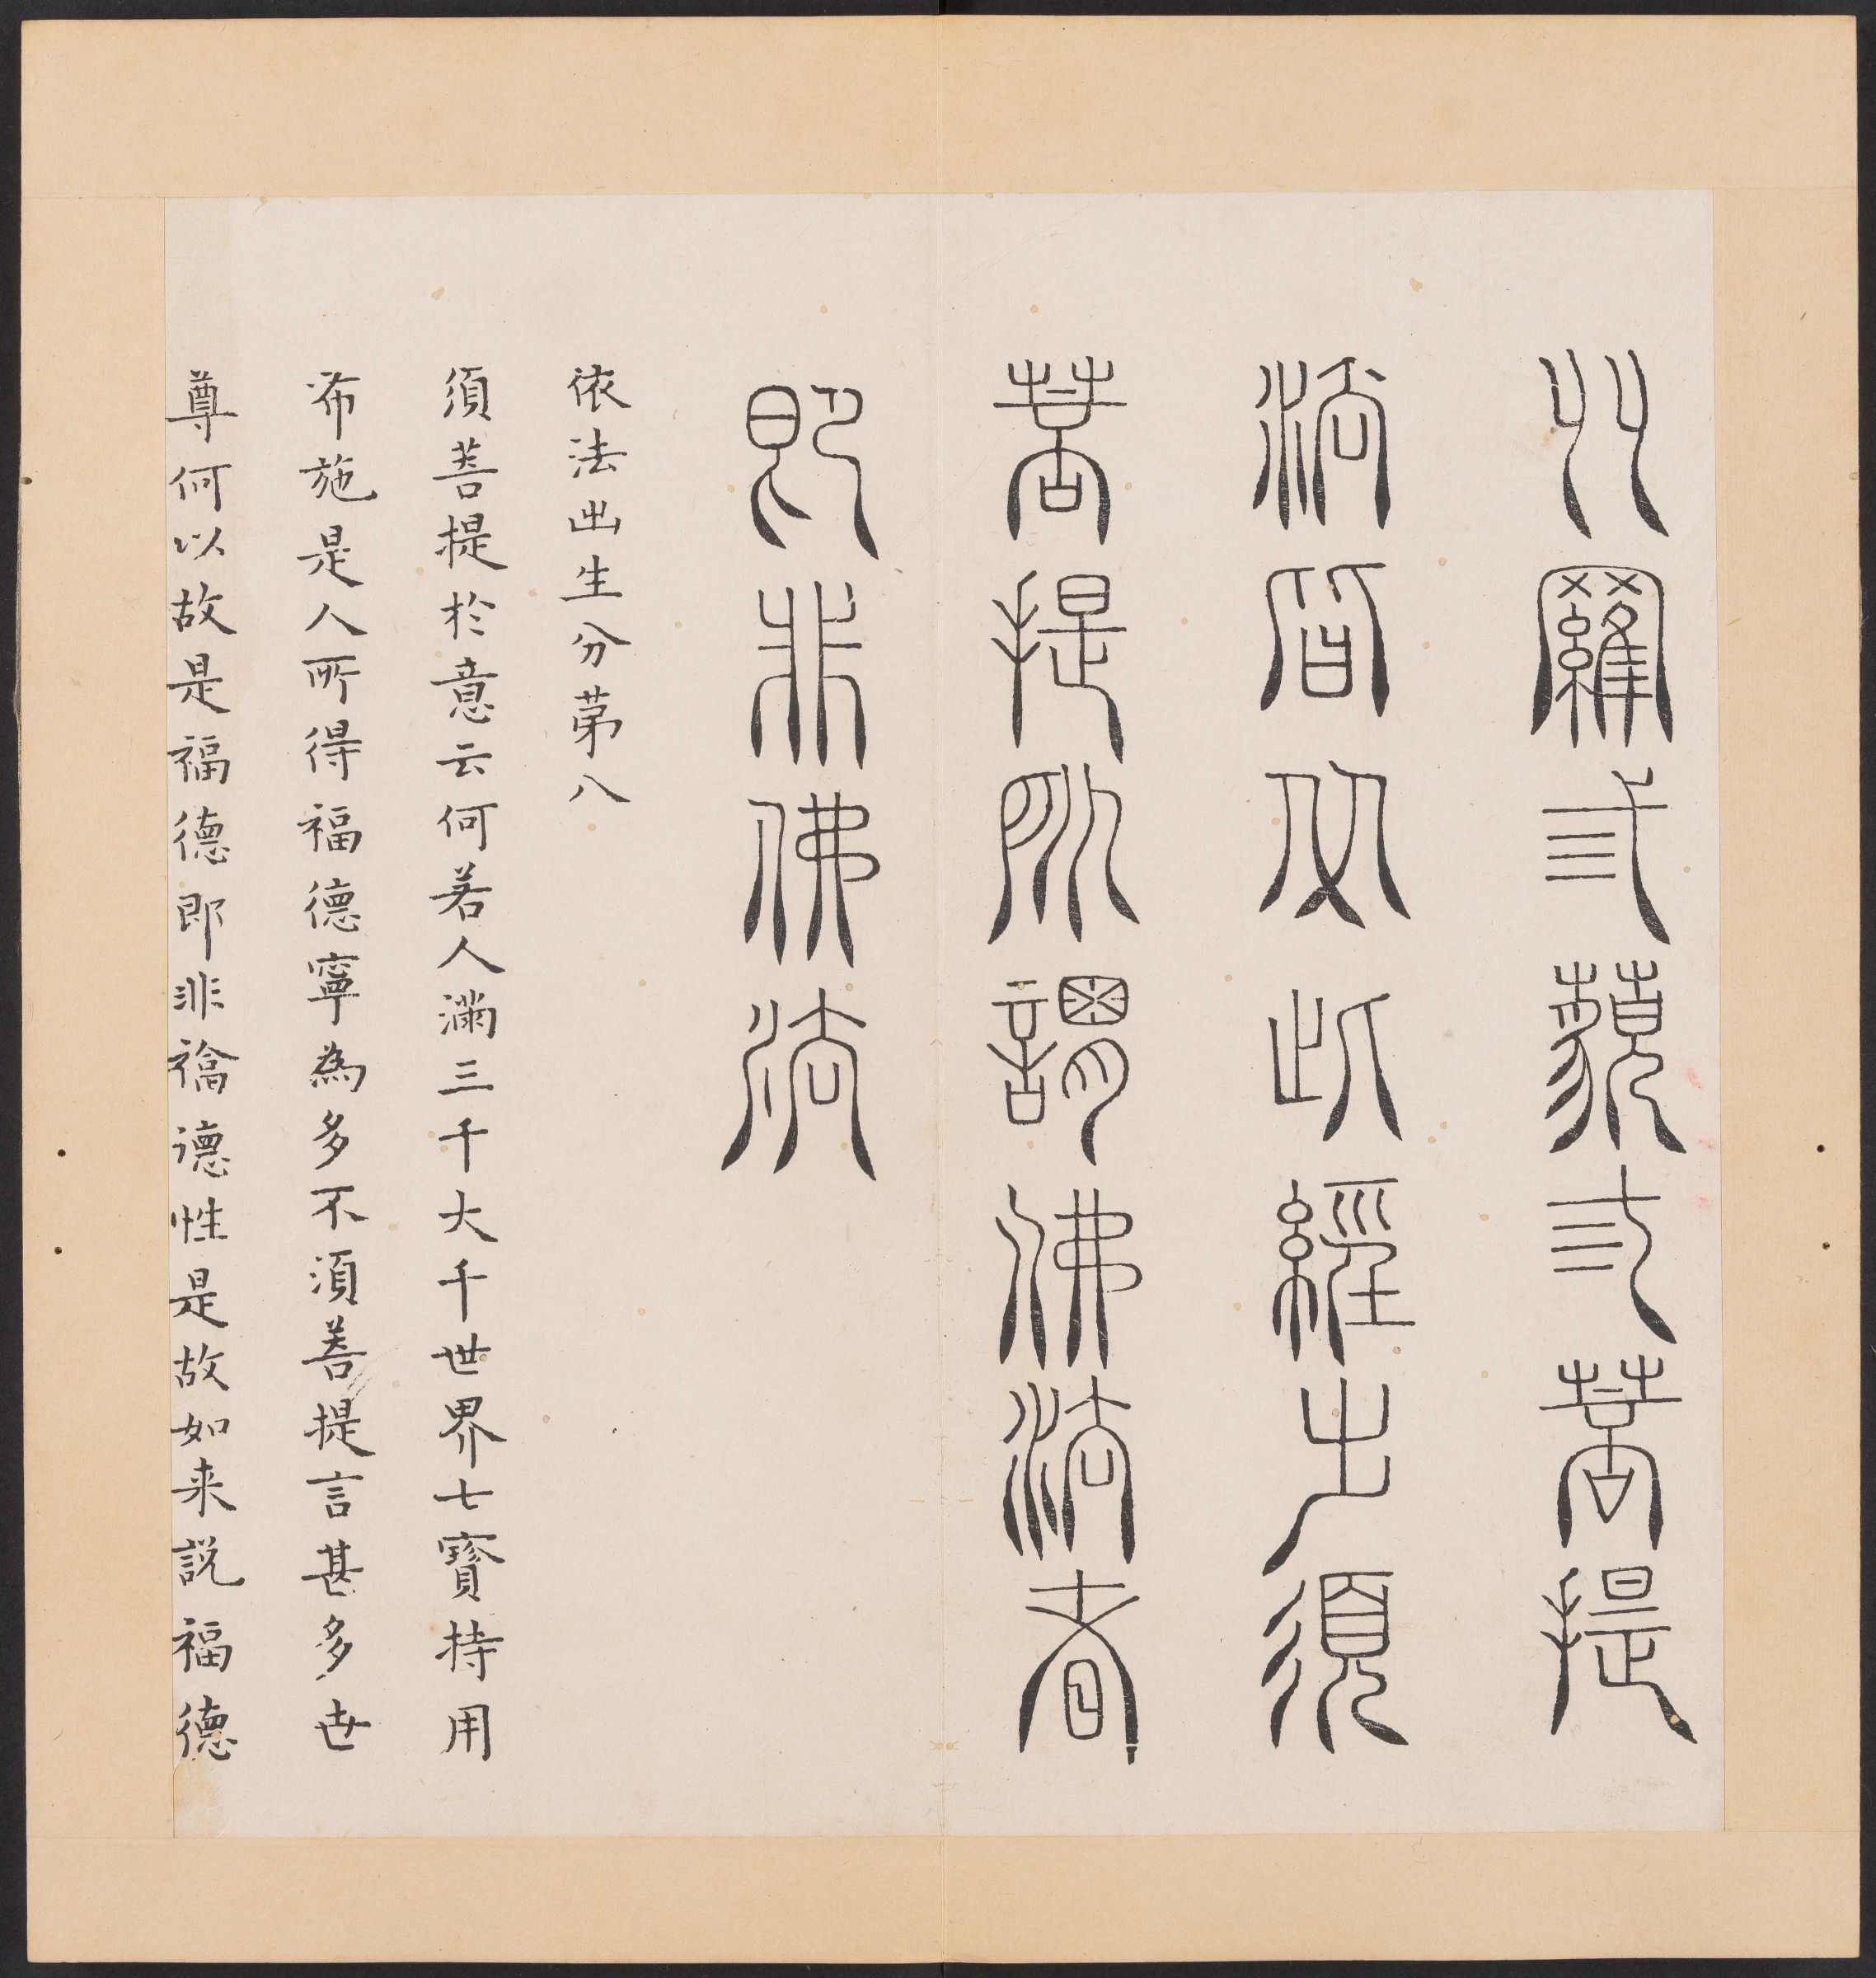 多羅三藐三菩提
法皆从此經出須
菩提所謂佛法者
即非佛法
依法出生分苐八
須菩提於意云何若人滿三千大千世界七寳持用
布施是人所得福德寧為多不須菩提言甚多世
尊何以故是福德即非福德性是故如来説福德